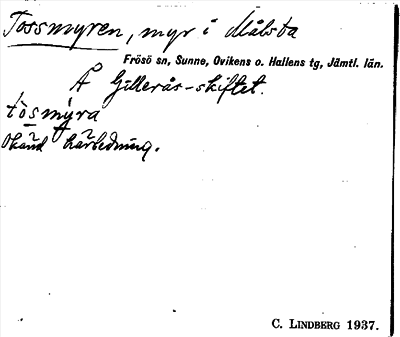 Tossmyren, myr i Målsta
Frösö sn, Sunne, Ovikens o. Hallens tg, Jämtl. län.
Å Gillerås-skiftet.
tòsmýra
Okänd härledning.
C. LINDBERG 1937.